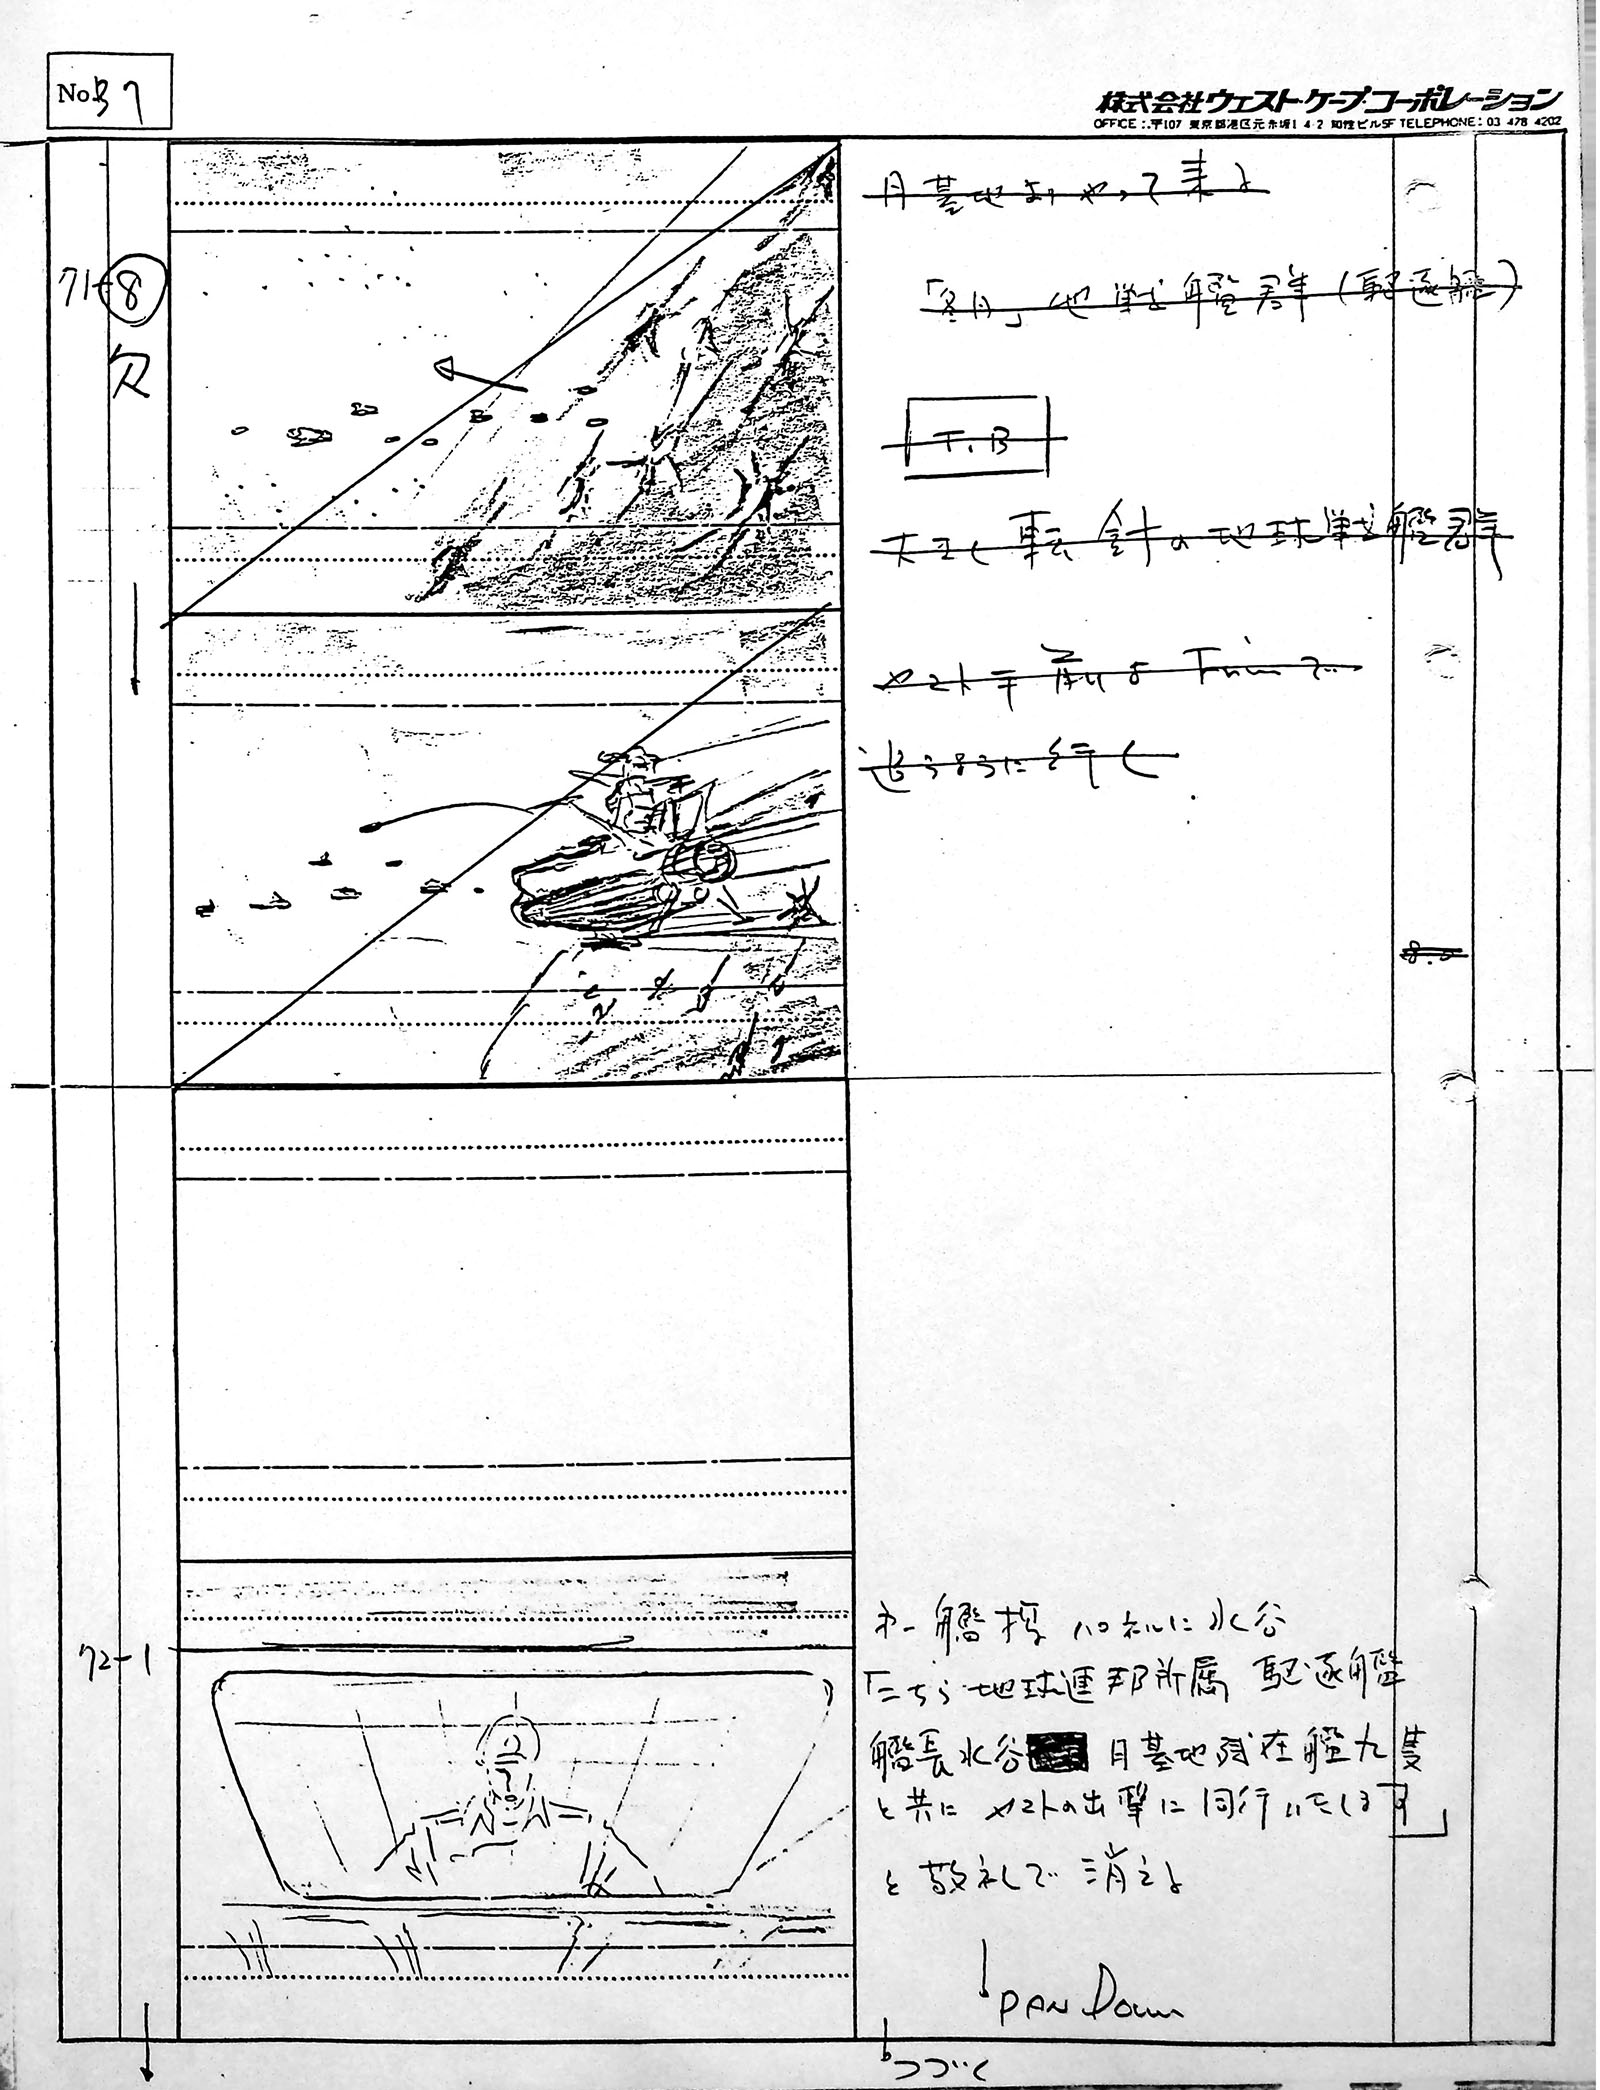 No. 37
株式会社ウエスト・ケープ・コーポレーション
OFFICE:〒107 東京都港区元赤坂1-4-2 知性ビル5F TELEPHONE: 03 478 4202
71-8
欠
月基地よりやって来る
「冬月」他戦艦群(駆逐艦)
T.B
大きく転針の地球戦艦群
ヤマト手前より Fr in で
追うように行く
8.0
72-1
オ一艦橋 パネルに水谷
「こちら地球連邦所属 駆逐艦
艦長水谷 月基地残在艦九隻
と共に ヤマトの出撃に同行いたします」
と敬礼して消える
PAN Down
つづく